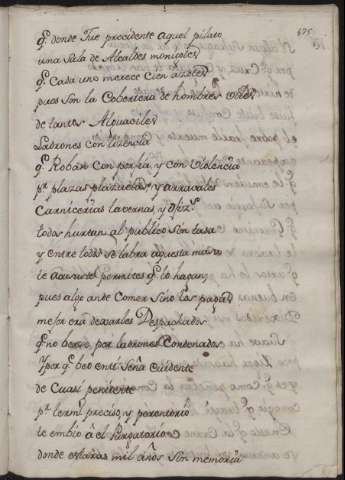 675
q.e donde fue precidente aquel pilato
una Sala de Alcaldes
q.e Cada uno merece Cien azotes
pues son la Cobertera de hombres
de tantos Alguaciles
Ladrones con licencia
q.e Roban Con perfia y con violencia
p.r plazas plazuelas y arravales
Carnicerias tavernas, y
todos hurtan al publico Sin tasa
y entre todos se labra aquesta
te permites q.e lo hagan,
pues algo ande Comer Sino los pagan
mejor era dexarles Despachados
q.e no berse, por ladrones Condenados
Y por q.e beo en ti Señal Evidente
de Cuasi penitente
p.r termino preciso y perentorio
te embio â el Purgatorio
donde estaras mil años Sin memoria